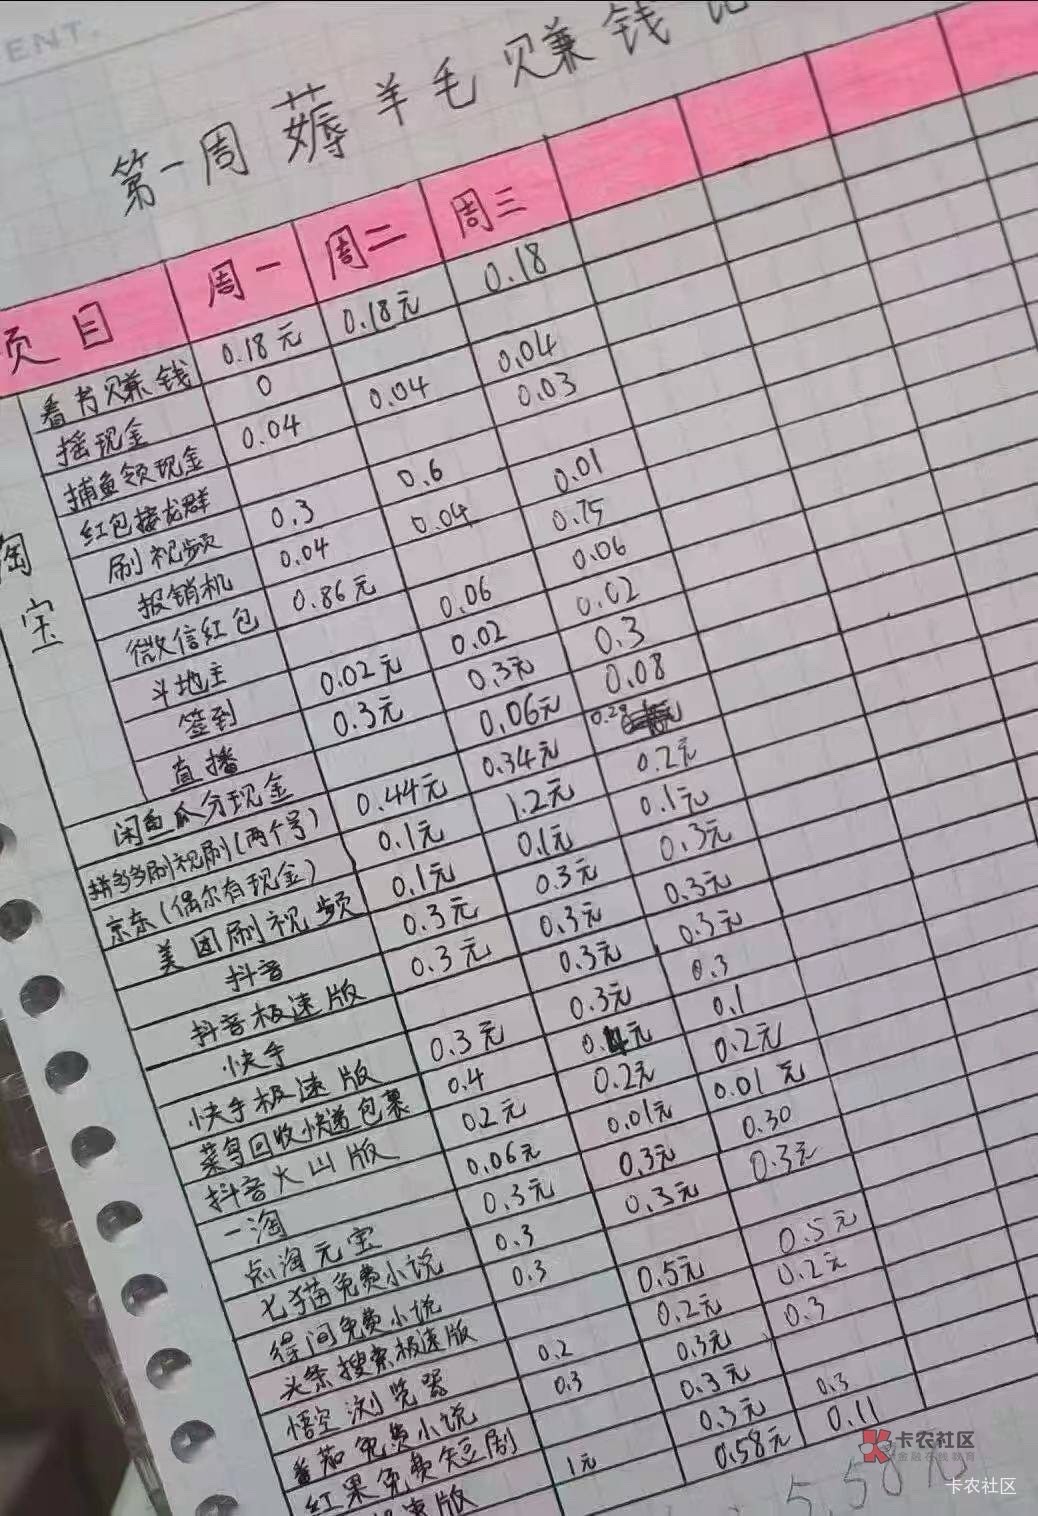 ENT.
第一周薅羊毛赚钱
项目 周一 周二 周三
淘宝
看书赚钱 0.18元 0.18元 0.18
摇现金 0
捕鱼领现金 0.04 0.04 0.04
红包接龙群 0.03
刷视频 0.3 0.6
报销机 0.04 0.04 0.01
微信红包 0.86元 0.75
斗地主 0.06 0.06
签到 0.02元 0.02 0.02
直播 0.3元 0.3元 0.3
闲鱼瓜分现金 0.06元 0.08
拼多多刷视刷(两个号) 0.44元 0.34元 0.29
京东(偶尔有现金) 0.1元 1.2元 0.2元
美团刷视频 0.1元 0.1元 0.1元
抖音 0.3元 0.3元 0.3元
抖音极速版 0.3元 0.3元 0.3元
快手 0.3元 0.3元
快手极速版 0.3元 0.3元 0.3
菜鸟回收快递包裹 0.4 0.1
抖音火山版 0.2元 0.2元 0.2元
一淘 0.06元 0.01元 0.01元
点淘元宝 0.3元 0.3元 0.30
七猫免费小说 0.3 0.3元 0.3元
得间免费小说 0.3
头条搜索极速版 0.5元 0.5元
悟空浏览器 0.2 0.2元 0.2元
番茄免费小说 0.3 0.3元 0.3
红果免费短剧 0.3元
速版 1元 0.3元 0.3
0.58元 0.11
5.58元
卡农社区
金融在线教育
卡农社区